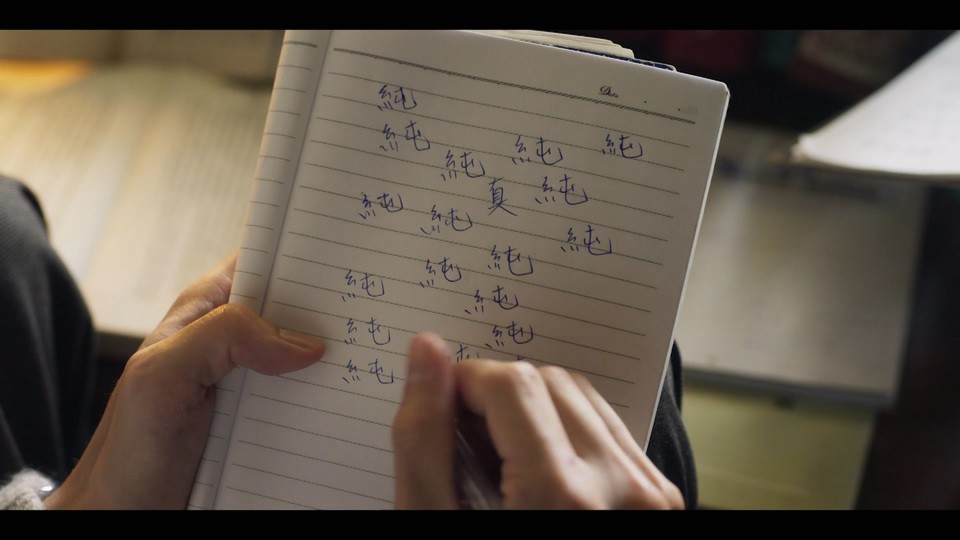 Date
純
純 純 純 純
真 純
純 純 純
純 純 純
純 純
純 純